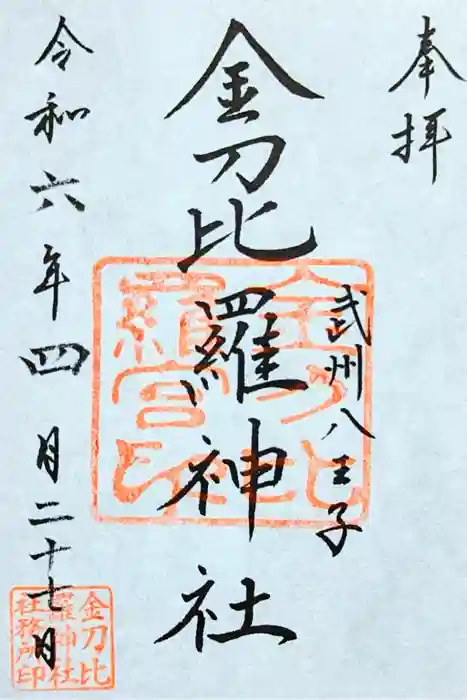 奉拝
武州八王子
金刀比羅神社
令和六年四月二十七日
金刀比羅宮印
金刀比羅神社社務所印